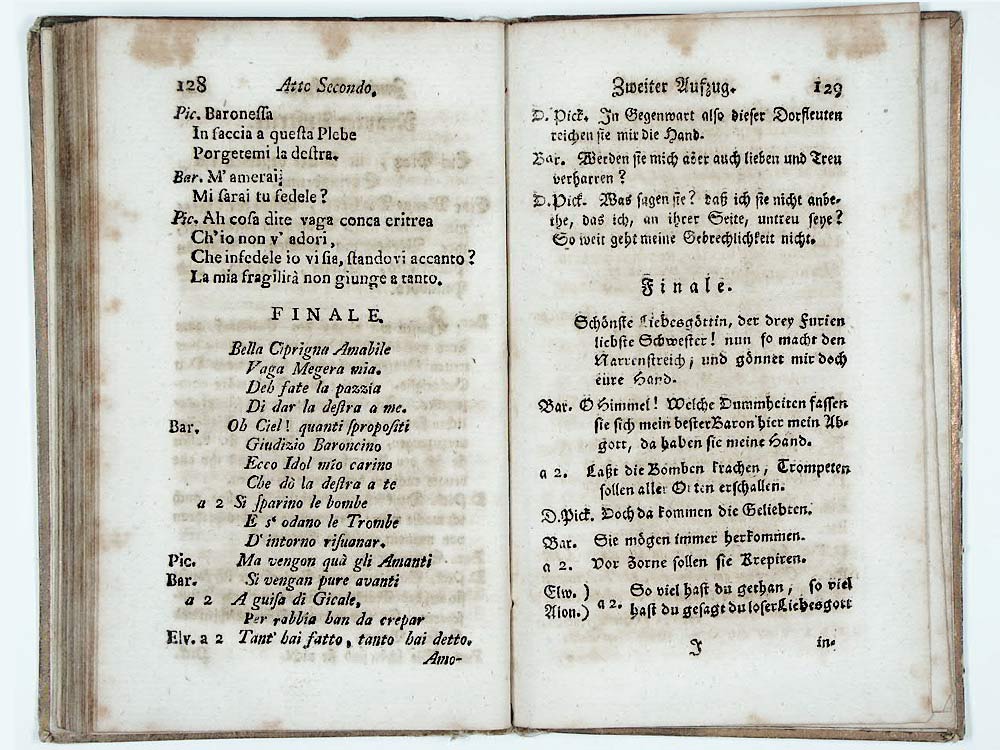 128 Atto Secondo.
Pic. Baronessa
In faccia a questa Plebe
Porgetemi la destra.
Bar. M' amerai;
Mi sarai tu fedele?
Pic. Ah cosa dite vaga conca eritrea
Ch'io non v' adori,
Che infedele io vi sia, standovi accanto?
La mia fragilità non giunge a tanto.
FINALE.
Bella Ciprigna Amabile
Vaga Megera mia.
Deh fate la pazzia
Di dar la destra a me.
Bar. Oh Ciel! quanti spropositi
Giudizio Baroncino
Ecco Idol mio carino
Che dò la destra a te
a 2 Si sparino le bombe
E s' odano le Trombe
D' intorno risuonar.
Pic. Ma vengon quà gli Amanti
Bar. Si vengan pure avanti
a 2 A guisa di Gicale,
Per rabbia han da crepar
Elv. a 2 Tant' hai fatto, tanto hai detto.
Amo-
Zweiter Aufzug. 129
D. Pick. In Gegenwart also dieser Dorfleuten
reichen sie mir die Hand.
Bar. Werden sie mich aber auch lieben und Treu
verharren?
D. Pick. Was sagen sie? daß ich sie nicht anbe-
the, das ich, an ihrer Seite, untreu seye?
So weit geht meine Gebrechlichkeit nicht.
Finale.
Schönste Liebesgöttin, der drey Furien
liebste Schwester! nun so macht den
Narrenstreich, und gönnet mir doch
eure Hand.
Bar. O Himmel! Welche Dummheiten fassen
sie sich mein bester Baron hier mein Ab-
gott, da haben sie meine Hand.
a 2. Laßt die Bomben krachen, Trompeten
sollen aller Orten erschallen.
D. Pick. Doch da kommen die Geliebten.
Bar. Sie mögen immer herkommen.
a 2. Vor Zorne sollen sie Krepiren.
Elw. ) So viel hast du gethan, so viel
Aion.) a 2. hast du gesagt du loser Liebesgott
J in-